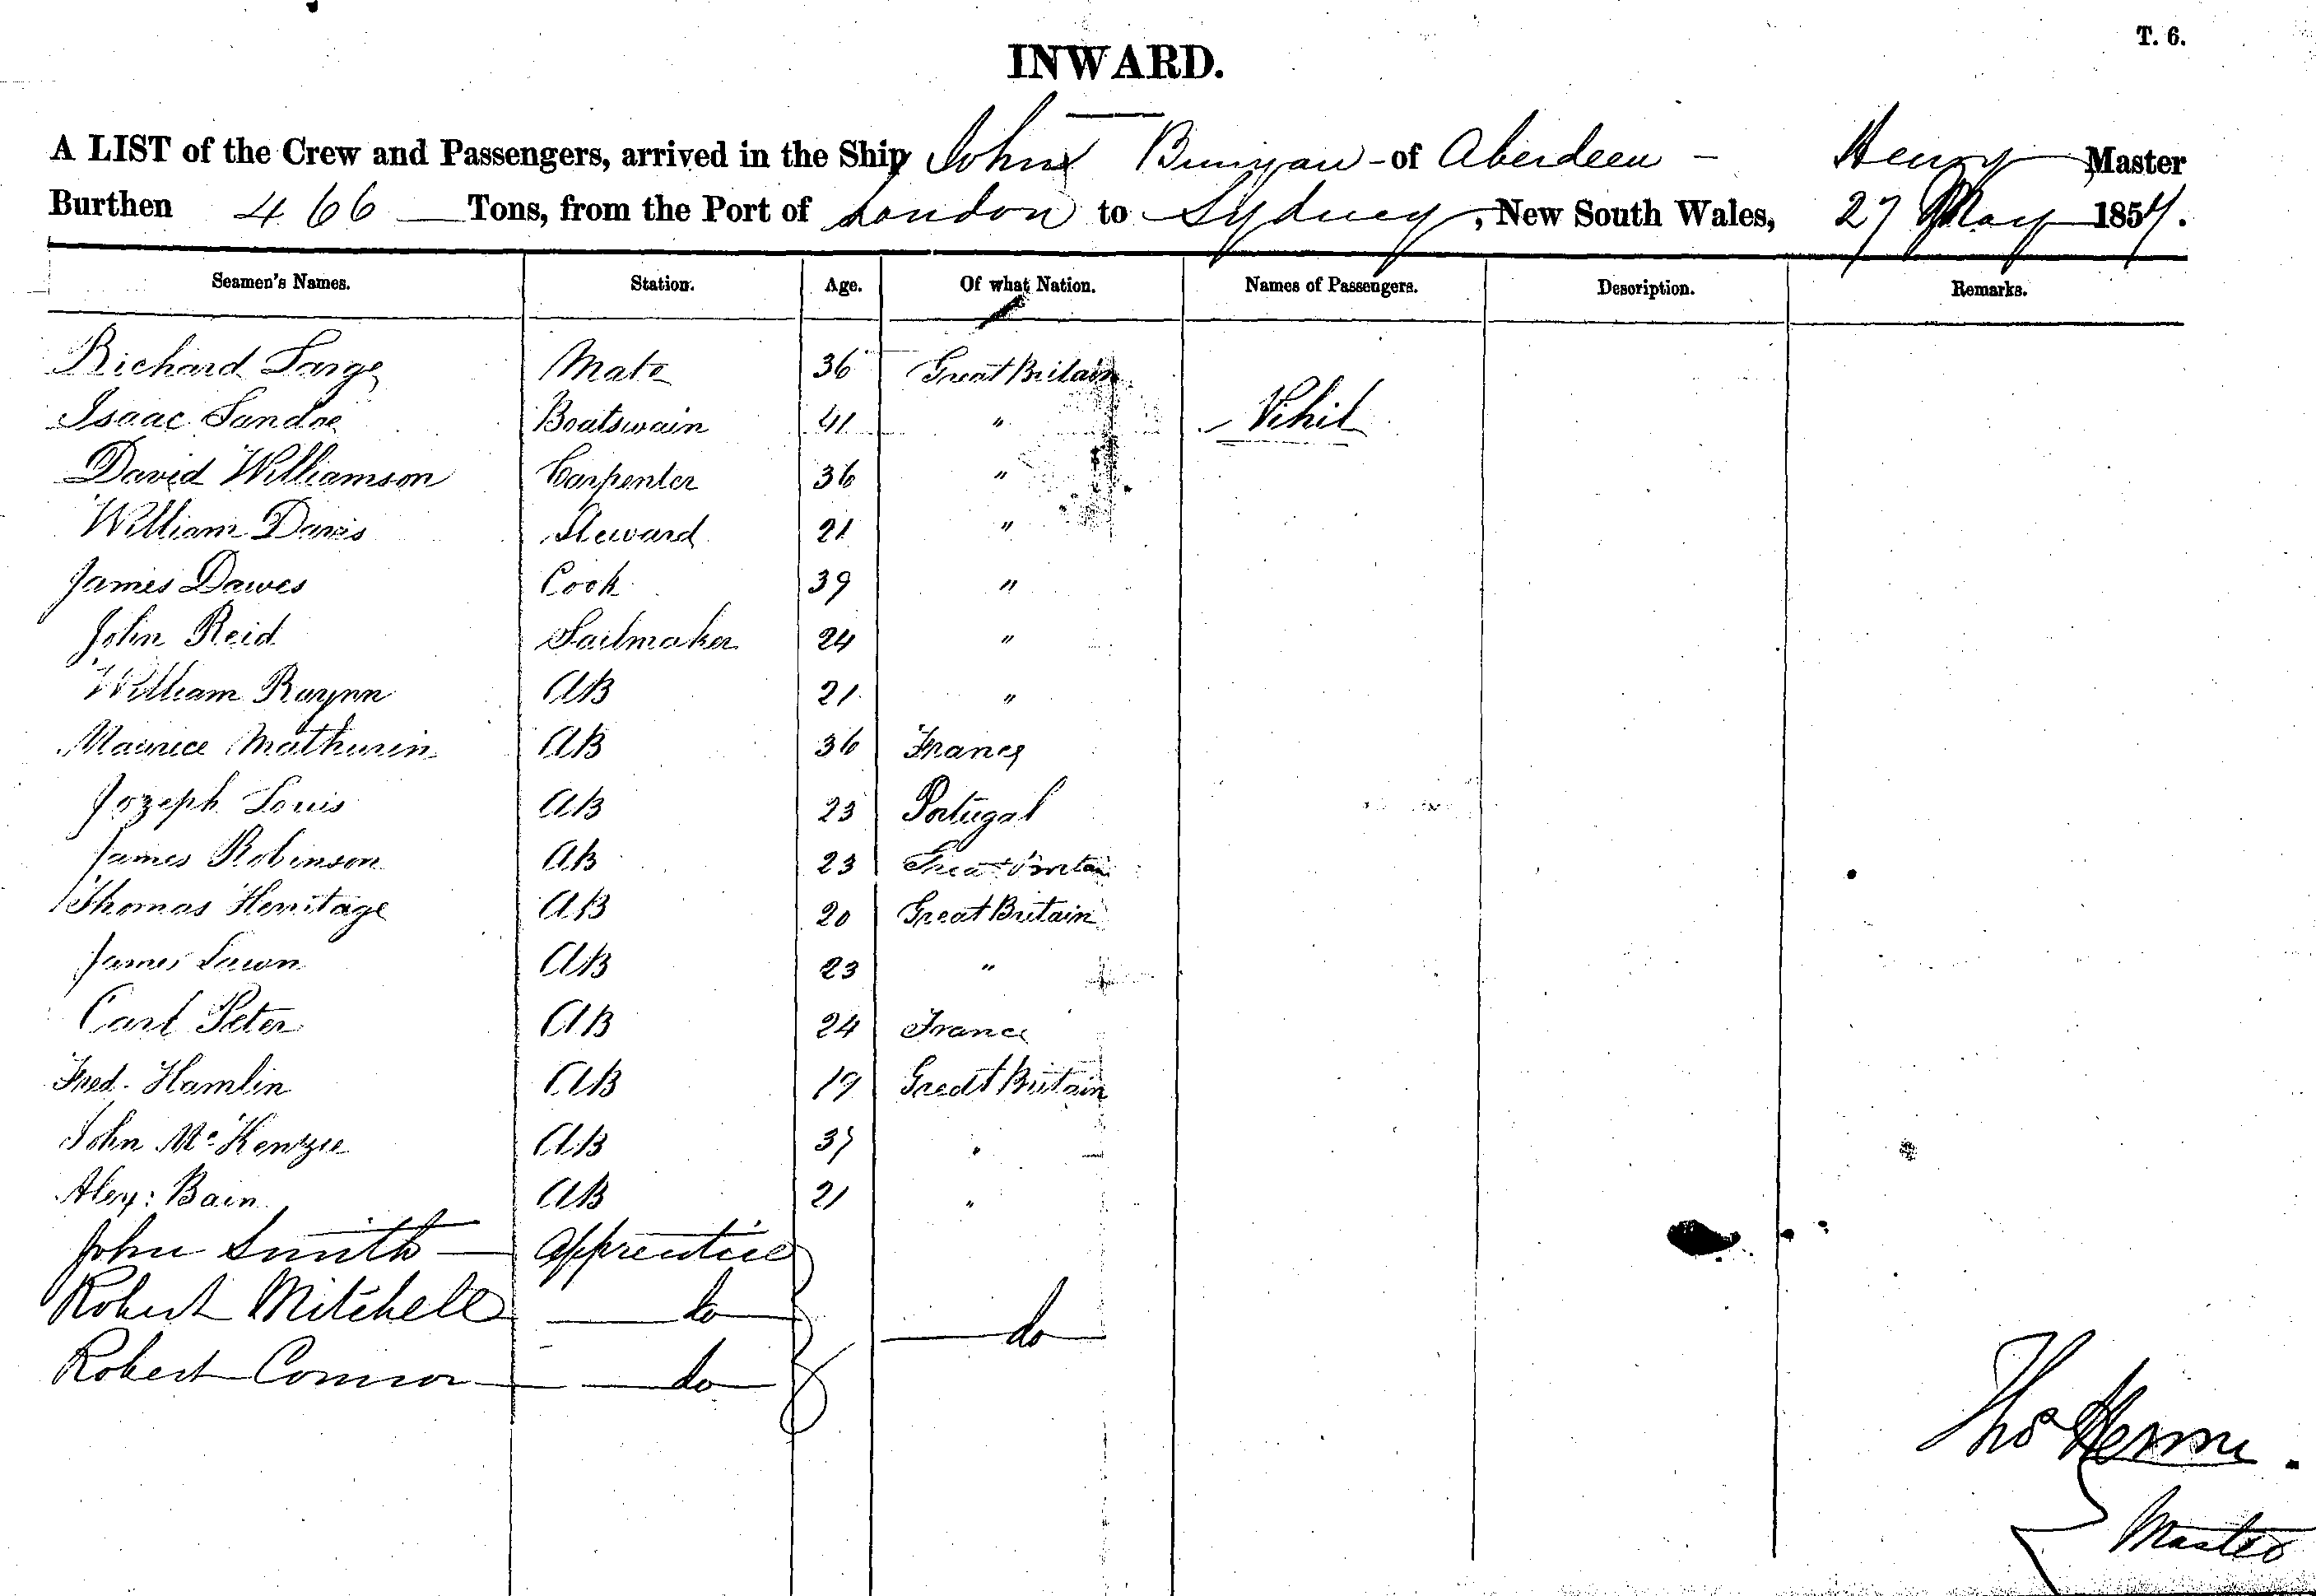 T. 6.
INWARD.
A LIST of the Crew and Passengers, arrived in the Ship John Bunyan - of Aberdeen - Henry Master
Burthen 466 Tons, from the Port of London to Sydney, New South Wales, 27 May 1857.
Seamen's Names. Station. Age. Of what Nation. Names of Passengers. Description. Remarks.
Richard Large Mate 36 Great Britain
Isaac Sandoe Boatswain 41 " Nihil
David Williamson Carpenter 36 "
William Davis Steward 21 "
James Dawes Cook 39 "
John Reid Sailmaker 24 "
William AB 21 "
Maurice Mathurin AB 36 France
Jozeph Louis AB 23 Portugal
James Robinson AB 23 Great Britain
Thomas Herritage AB 20 Great Britain
James Lawn AB 23 "
Carl Peter AB 24 France
Fred. Hamlin AB 19 Great Britain
John McKenzie AB 37 "
Alex: Bain AB 21 "
John Smith Apprentice
Robert Mitchell do do
Robert Connor do
Thos
Master